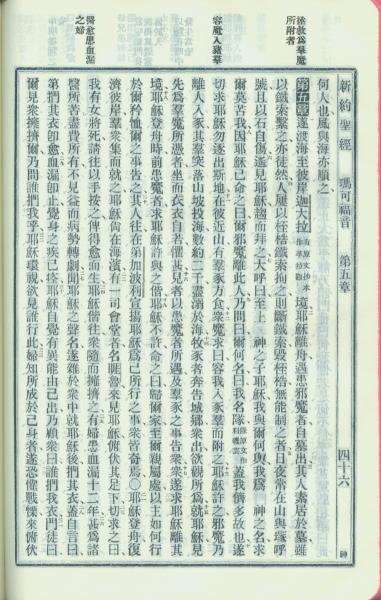 新約聖經 瑪可福音 第五章 四十六 神
拯救爲羣魔
所附者
容魔入豬羣
醫愈患血漏
之婦
何人也風與海亦順之
第五章遂渡海至彼岸迦大拉境耶穌離舟遇患邪魔者自墓出其人素居於墓雖
以鐵索繫之亦徒然人屢以桎梏鐵索拘之則斷鐵索毀桎梏無能制之者日夜常在山與塚呼
號且以石自傷遙見耶穌趨而拜之大呼曰至上 神之子耶穌我與爾何與我爲 神之名求
爾莫苦我因耶穌已命之曰爾邪魔離此人乃問曰爾何名曰我名隊隊原文作利磯雲蓋我儕多故也遂
切求耶穌勿逐出斯地在彼近山有羣豕方食衆魔求曰容我入豕羣而附之耶穌許之邪魔乃
離人入豕其羣突落山坡投海數約二千盡溺於海牧豕者奔告城鄉衆出欲觀所爲就耶穌見
先爲羣魔所憑者坐而衣衣自若懼甚見者以患魔者所遇及羣豕之事告衆衆遂求耶穌離其
境耶穌登舟時前患魔者求耶穌許與之偕耶穌不許命之曰歸爾家至爾親屬處以主如何行
於爾矜恤爾之事告之其人往在第加波利宣揚耶穌爲己所行之事衆皆奇焉○耶穌登舟復
濟彼岸羣衆集而就之耶穌尚在海濱有一司會堂者名睚魯來見耶穌俯伏其足下切求之曰
我有女將死請往以手按之俾得愈而生耶穌偕往衆隨而擁擠之有婦患血漏十二年甚爲諸
醫所苦盡費所有不見益而病勢轉劇聞耶穌之聲名遂雜於衆中就耶穌後捫其衣蓋自言曰
第捫其衣卽愈血漏卽止覺身之疾已痊耶穌自覺有異能由己出乃顧衆曰誰捫我衣門徒曰
爾見衆擁擠爾乃問誰捫我乎耶穌環視欲見誰行此婦知所成於己身者遂恐懼戰慄來俯伏